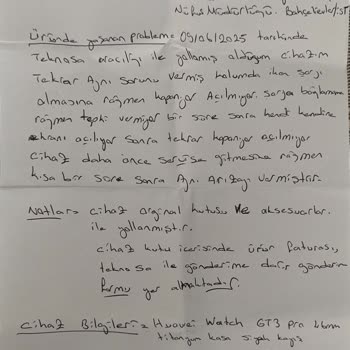 Nüfus Müdürlüğü. Bahçelievler/İST
Üründe yaşanan problem= 05/06/2025 tarihinde
Teknosa aracılığı ile yollamış olduğum cihazım
Tekrar Aynı sorunu vermiş halumda iken şarjı
olmasına rağmen kapanıyor Açılmıyor. şarja bağlanma
rağmen tepki vermiyor bir süre sonra kendi kendine
ekranı açılıyor sonra tekrar kapanıyor açılmıyor
cihaz daha önce servise gitmesine rağmen
kısa bir süre sonra Aynı Arızayı vermiştir.
Notlar= cihaz orginal kutusu ve aksesuarları
ile yollanmıştır.
cihaz kutu içerisinde ürün faturası,
teknosa ile gönderime dair gönderim
formu yer almaktadır.
cihaz Bilgileri= Huawei Watch GT3 Pro
titanyum kasa siyah kayış